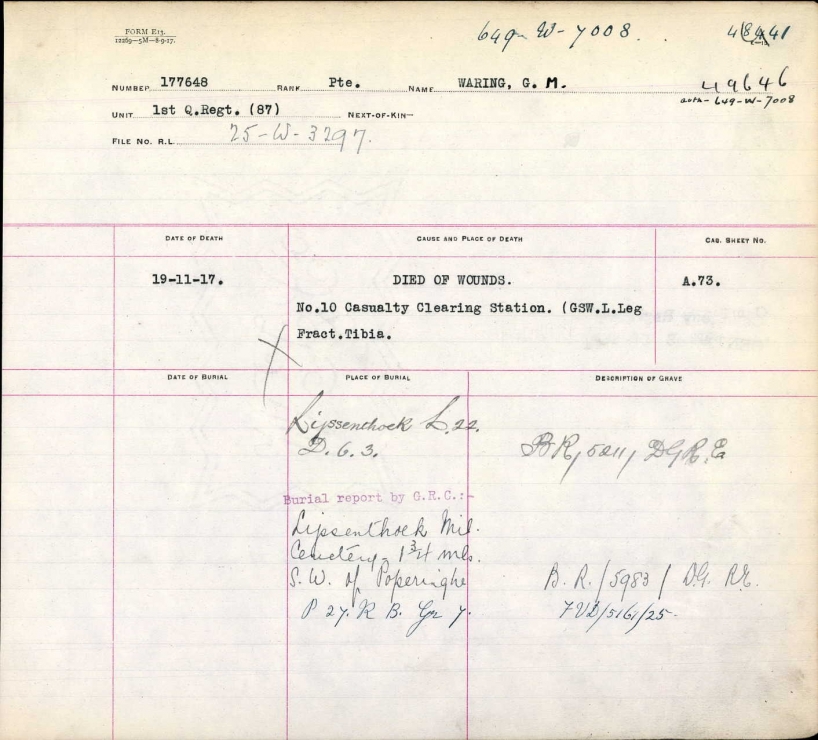 FORM E13.
12269—5M—8-9-17.
649-W-7008.
NUMBER 177648 RANK Pte. NAME WARING, G. M.
49646
auth-649-W-7008
UNIT 1st Q.Regt. (87) NEXT-OF-KIN—
FILE NO. R.L. 25-W-3297.
DATE OF DEATH CAUSE AND PLACE OF DEATH CAS. SHEET NO.
19-11-17. DIED OF WOUNDS. A.73.
No.10 Casualty Clearing Station. (GSW.L.Leg
Fract.Tibia.
DATE OF BURIAL PLACE OF BURIAL DESCRIPTION OF GRAVE
Lijssenthoek L.22.
D.6.3. BR/5211/DGR.E
Burial report by G.R.C.:-
Lijssenthoek Mil.
Cemetery. 1 3/4 mls.
S.W. of Poperinghe B.R./5983/D.G.R.E.
P 27. R B. Gr 7. 7VD/5161/25-